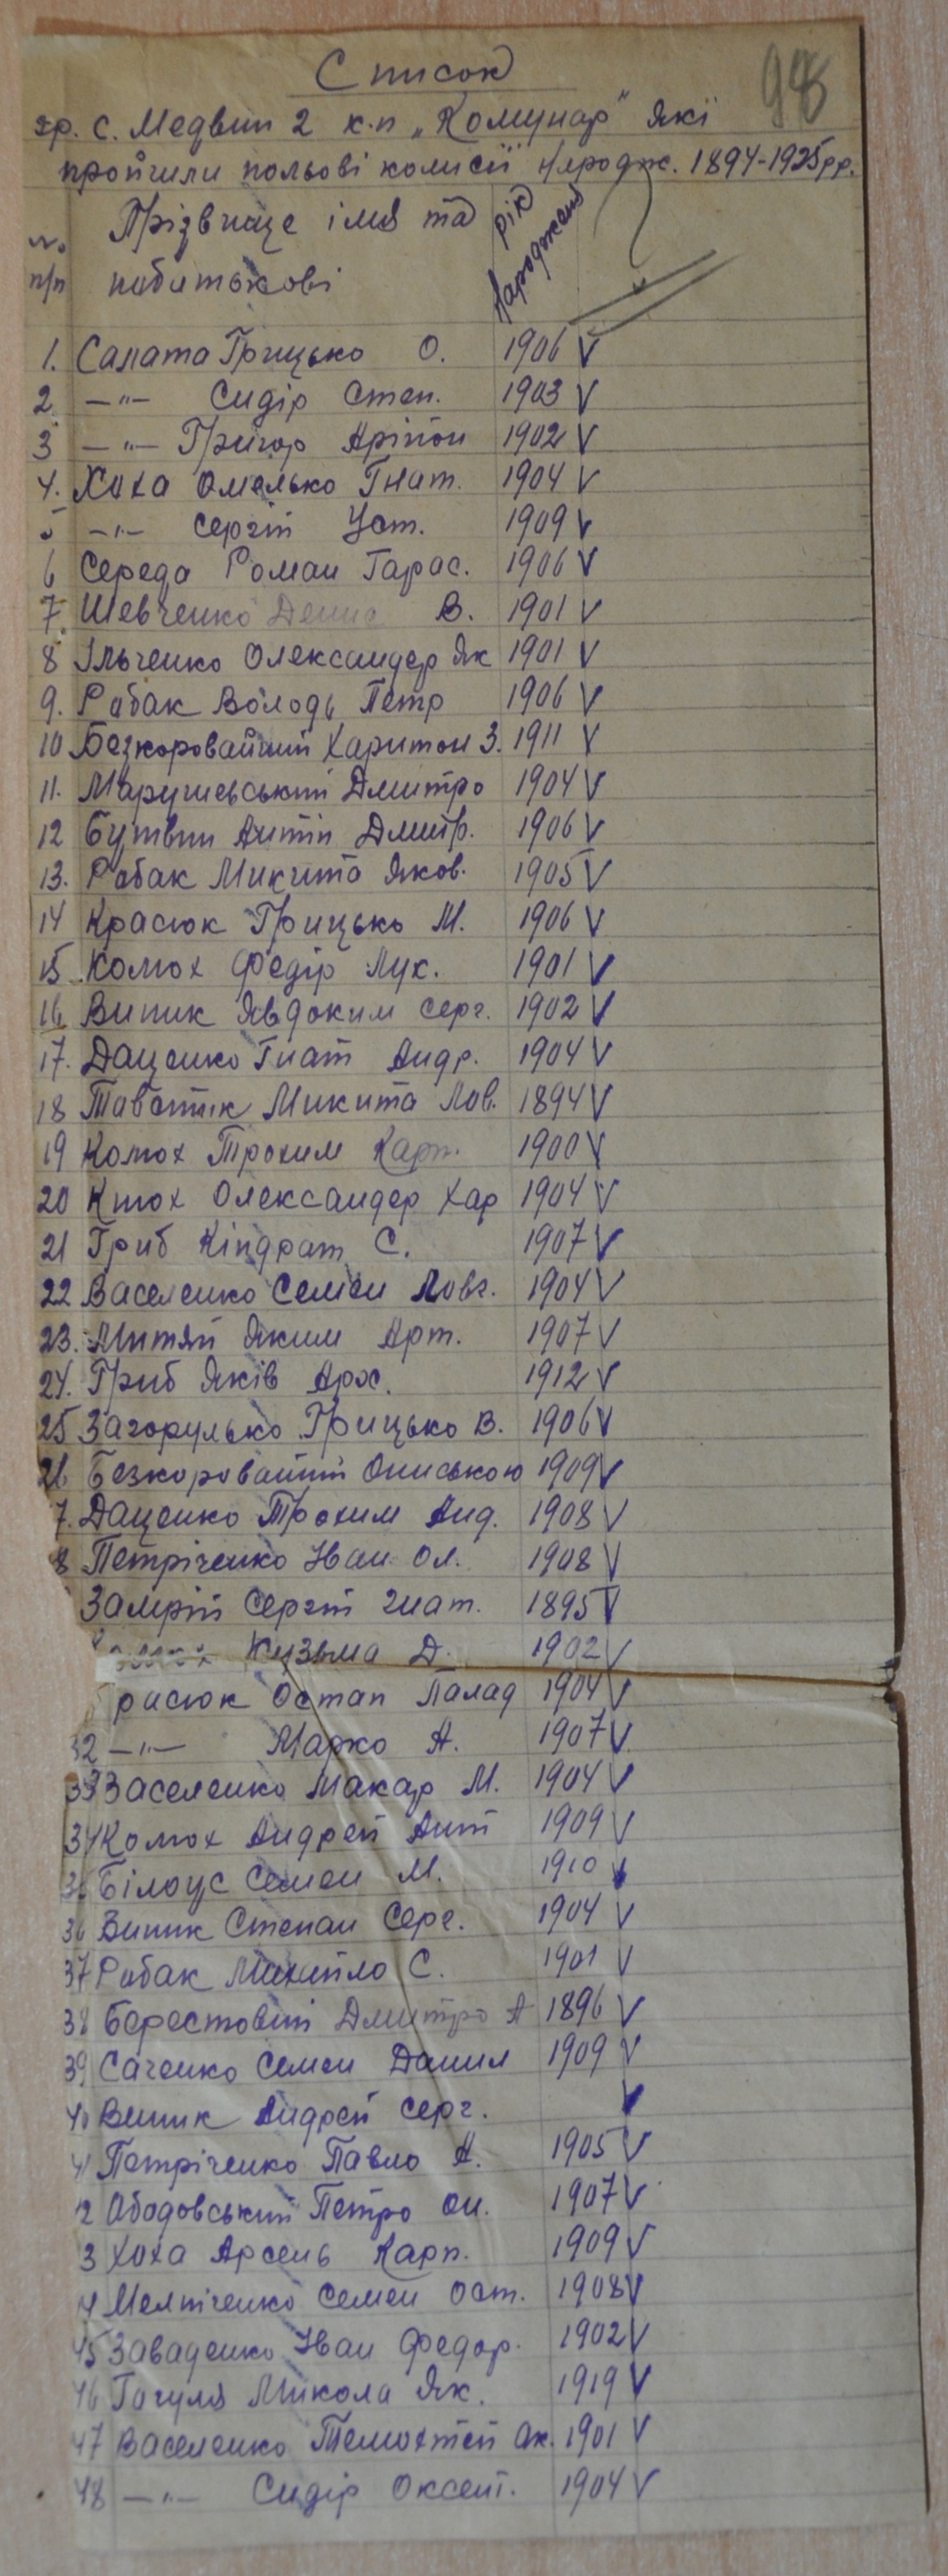 Список
98
гр. с. Медвин 2 к.п "Комунар" які
пройшли польові комисії народж. 1894-1925рр.
№ п/п Прізвище імя та побатькові рік народженя
1. Салата Грицько О. 1906 V
2. —"— Сидір Степ. 1903 V
3 —"— Григор Аріпон 1902 V
4. Хоха Омелько Гнат. 1904 V
5 —"— Сергій Уст. 1909 V
6 Середа Роман Тарас. 1906 V
7. Шевченко Денис В. 1901 V
8 Ільченко Олександер Як 1901 V
9. Рабак Володь Петр 1906 V
10 Безкоровайний Харитон З. 1911 V
11. Марушевський Дмитро 1904 V
12 Бутвин Антін Дмитр. 1906 V
13. Рабак Микита Яков. 1905 V
14 Красюк Грицько М. 1906 V
15. Комох Федір Лук. 1901 V
16 Виник Явдоким Серг. 1902 V
17. Даценко Гнат Андр. 1904 V
18 Микита 1894 V
19 Комох Трохим Карп. 1900 V
20 Олександер Хар 1904 V
21 Гриб Кіндрат С. 1907 V
22 Василенко Семен 1904 V
23. Митяй Яким Арт. 1907 V
24. Гриб Яків 1912 V
25 Загорулько Грицько В. 1906 V
26 Безкоровайний 1909 V
7. Даценко Трохим Анд. 1908 V
8 Петріченко Іван Ол. 1908 V
Замрій Сергій Гнат. 1895 V
Кузьма Д. 1902 V
расюк Остап Палад 1904 V
32 —"— Марко А. 1907 V
33 Василенко Макар М. 1904 V
34 Комох Андрей Ант 1909 V
35 Білоус Семен М. 1910 V
36 Виник Степан Серг. 1904 V
37 Рабак Михайло С. 1901 V
38 Берестовий Дмитро А 1896 V
39 Саченко Семен Данил 1909 V
40 Виник Андрей Серг. V
41 Петріченко Павло А. 1905 V
2 Ободовський Петро Он. 1907 V
3 Хоха Арсень Карп. 1909 V
4 Мелніченко Семен Ост. 1908 V
45 Заваденко Іван Федор. 1902 V
46 Гагуля Микола Як. 1919 V
47 Василенко Темохтей Ок. 1901 V
48 —"— Сидір Оксент. 1904 V